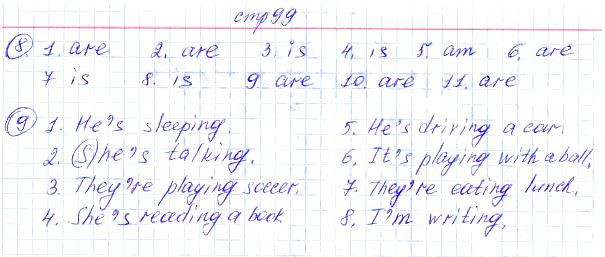 стр 99
8. 1. are 2. are 3. is 4. is 5. am 6. are
7 is 8. is 9 are 10. are 11. are
9 1. He's sleeping. 5. He's driving a car
2. (S)he's talking. 6. It's playing with a ball.
3. They're playing soccer. 7. They're eating lunch.
4. She's reading a book 8. I'm writing.